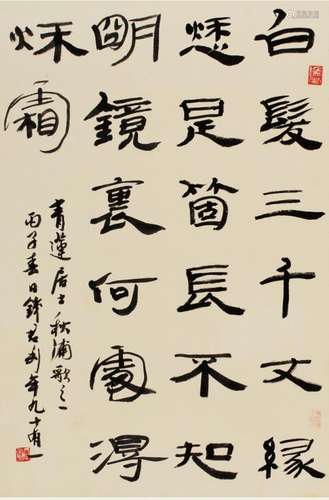 白髮三千丈緣
愁是箇長不知
朙鏡裏何處得
秌霜
青蓮居士秋浦歌之一
丙子春日錢君匋年九十有一